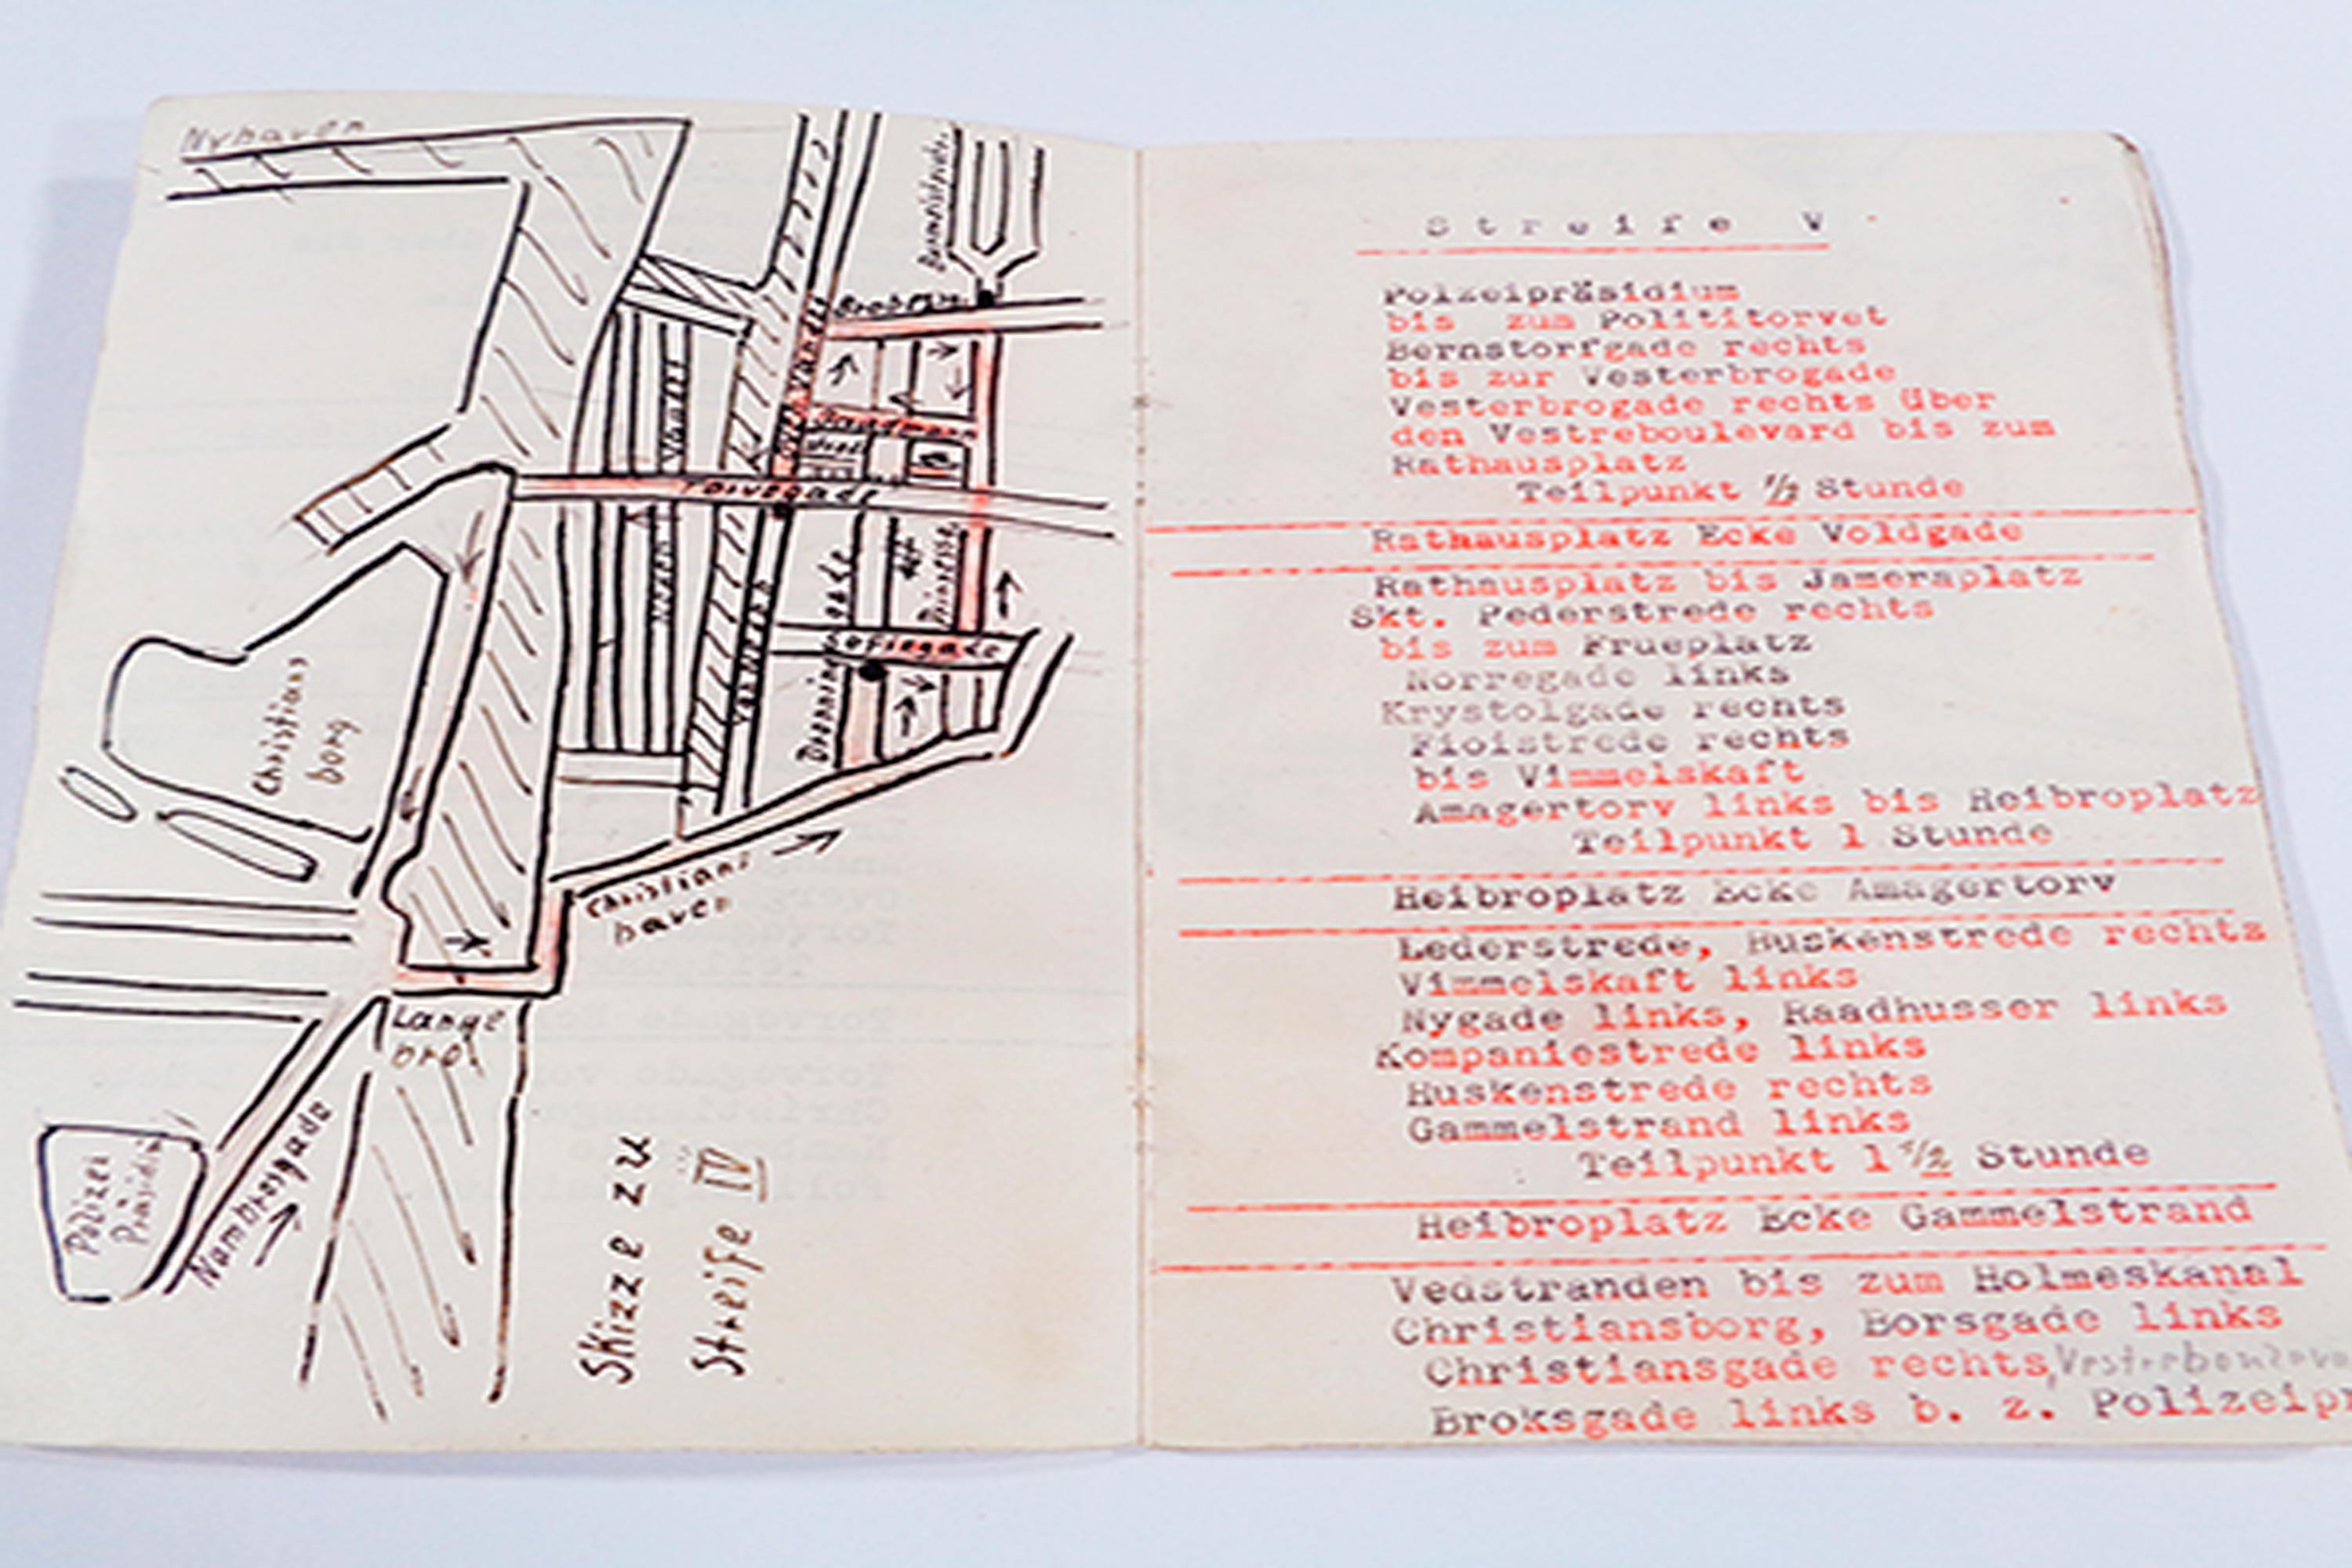 Nyhaven
Torvegade
Sofiegade
Christians
borg
Christians
haven
Lange
bro
Polizei
Präsidiu
Hambrosgade
Skizze zu
Streife IV
Streife V
Polzeipräsidium
bis zum Polititorvet
Bernstorfgade rechts
bis zur Vesterbrogade
Vesterbrogade rechts über
den Vestreboulevard bis zum
Rathausplatz
Teilpunkt 1/2 Stunde
Rathausplatz Ecke Voldgade
Rathausplatz bis Jameraplatz
Skt. Pederstrede rechts
bis zum Frueplatz
Norregade links
Krystolgade rechts
Fioistrede rechts
bis Vimmelskaft
Amagertorv links bis Heibroplatz
Teilpunkt 1 Stunde
Heibroplatz Ecke Amagertorv
Lederstrede, Huskenstrede rechts
Vimmelskaft links
Nygade links, Raadhusser links
Kompaniestrede links
Huskenstrede rechts
Gammelstrand links
Teilpunkt 1 1/2 Stunde
Heibroplatz Ecke Gammelstrand
Vedstranden bis zum Holmeskanal
Christiansborg, Borsgade links
Christiansgade rechts,
Broksgade links b. z. Polizeip